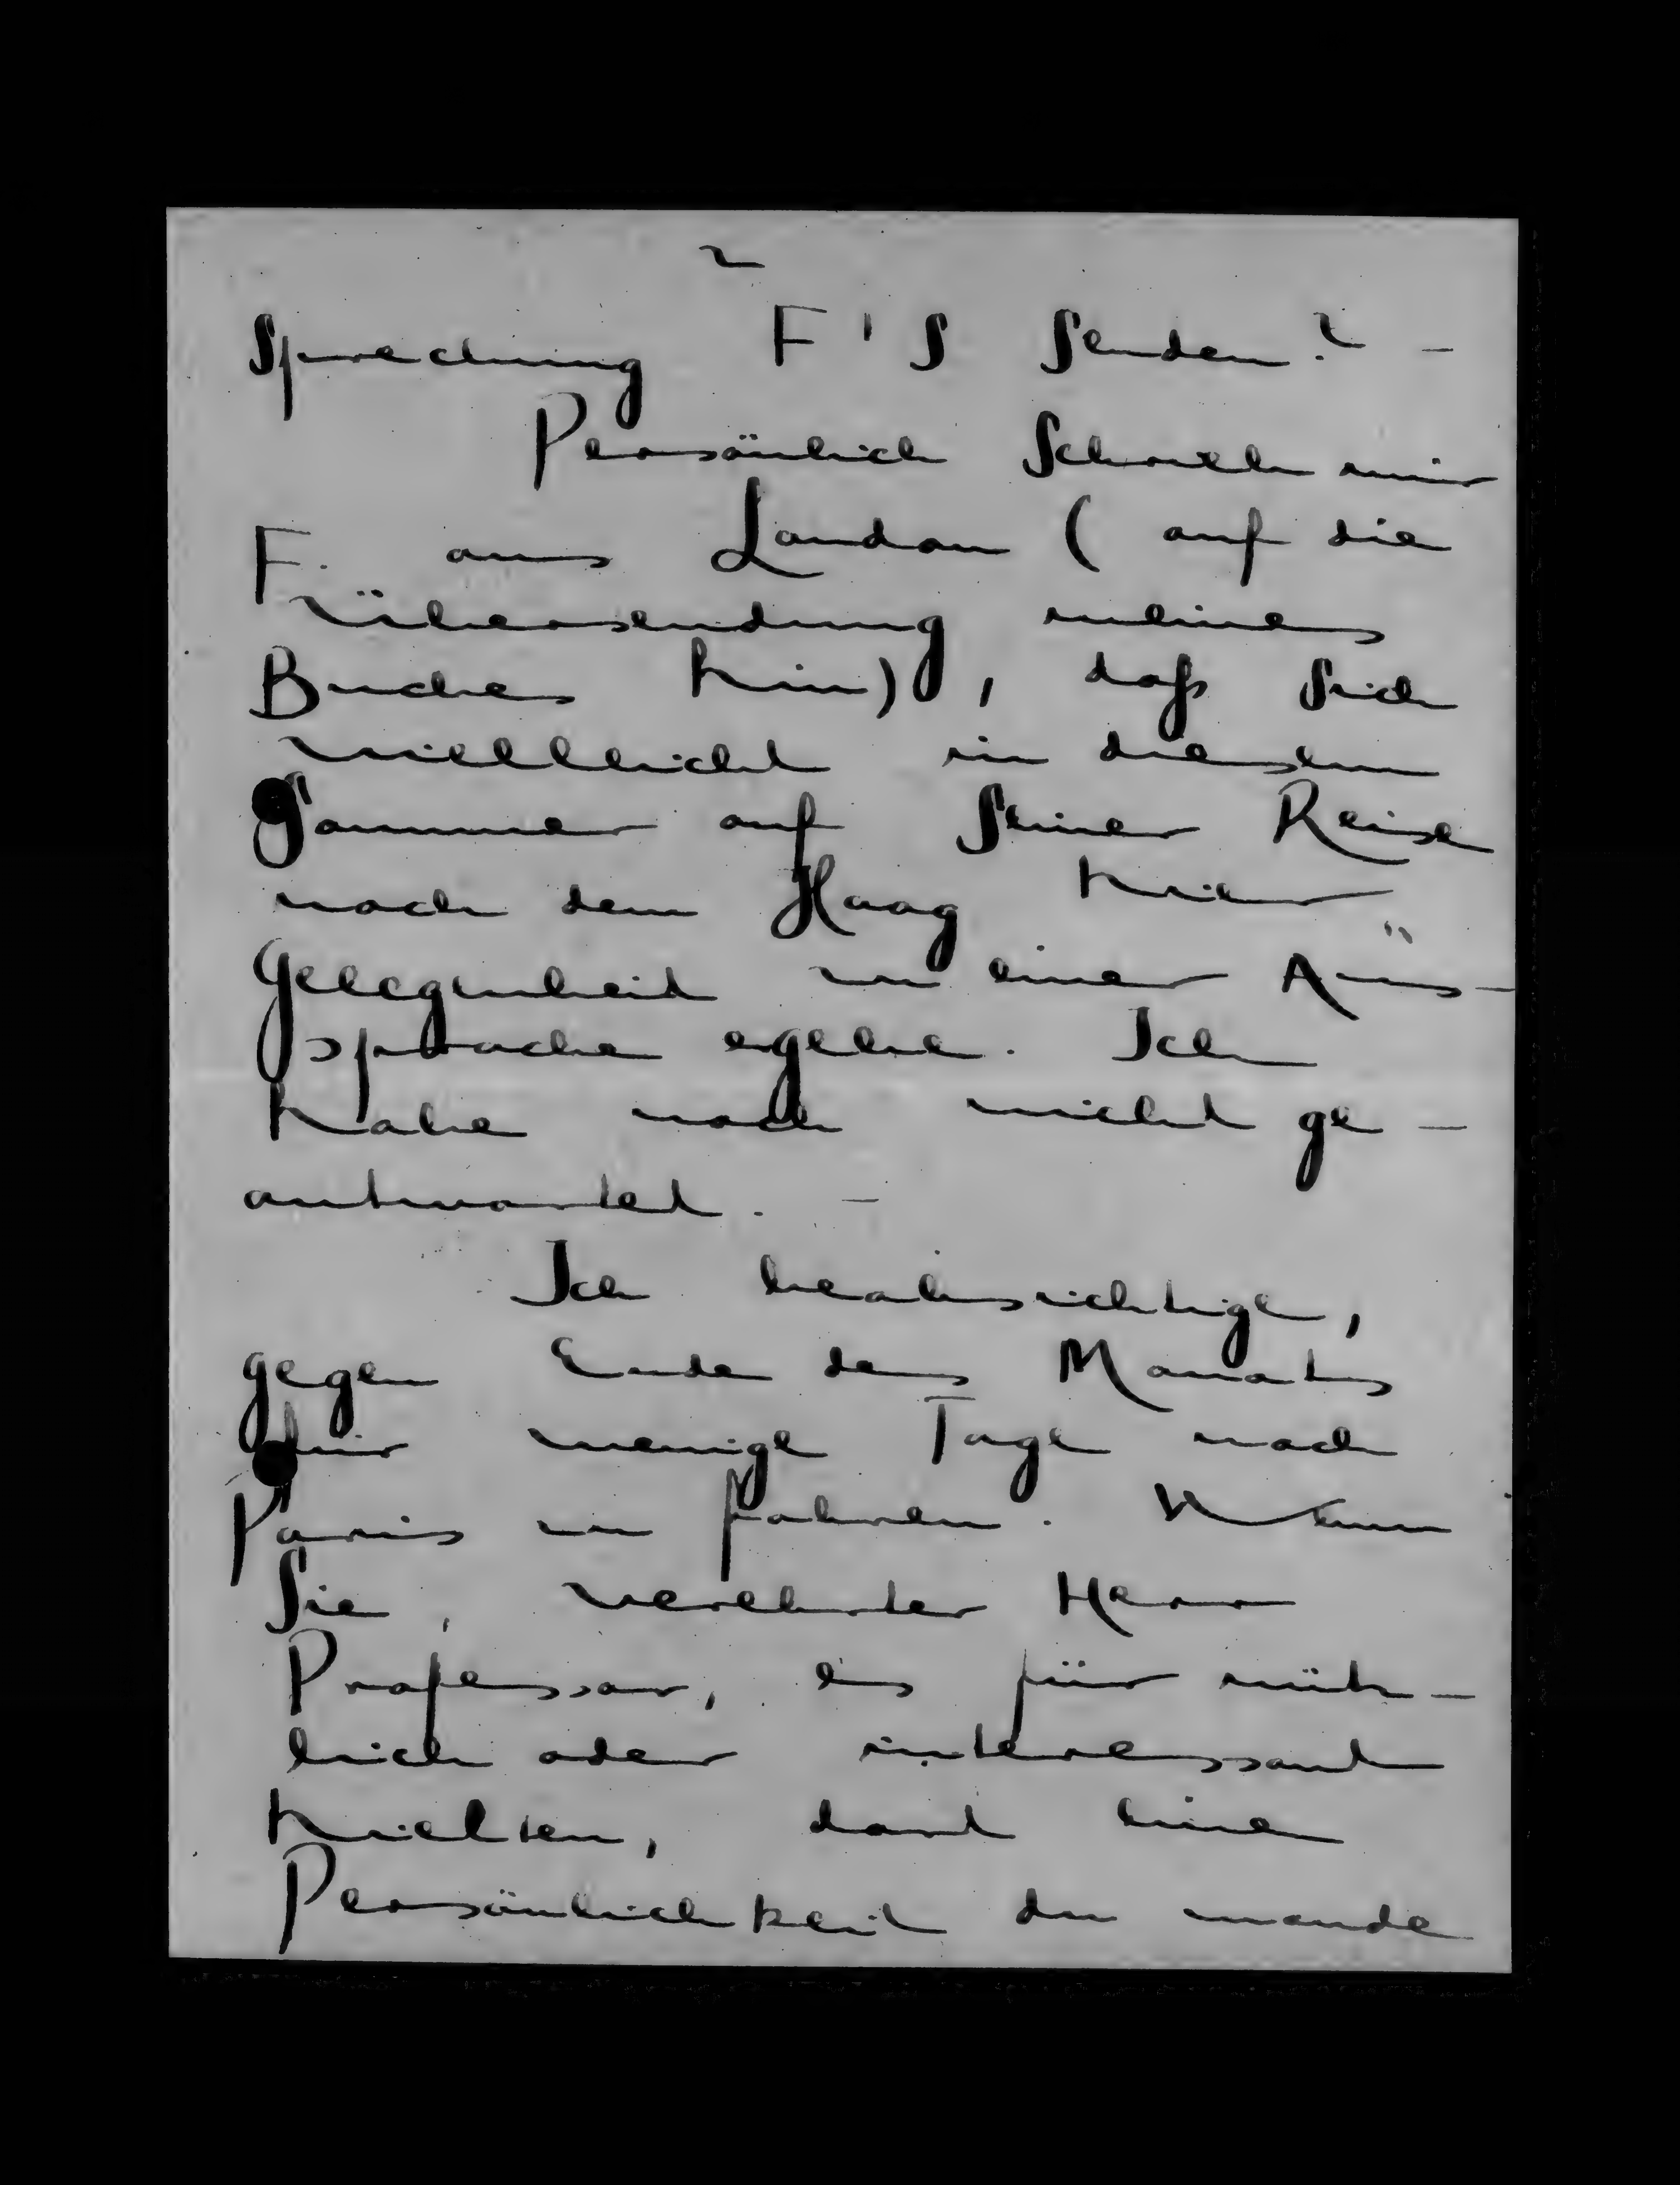 2
sprechung F's senden? –
Persönlich schrieb mir
F. aus London (auf die
Übersendung meines
Buches hin), daß sich
vielleicht in diesem
Sommer auf seiner Reise
nach dem Haag hier
Gelegenheit zu einer Aus-
sprache ergebe. Ich
habe noch nicht ge-
antwortet. –
Ich beabsichtige,
gegen Ende des Monats
für wenige Tage nach
Paris zu fahren. Wenn
Sie, verehrter Herr
Professor, es für nütz-
lich oder interessant
hielten, dort eine
Persönlichkeit der